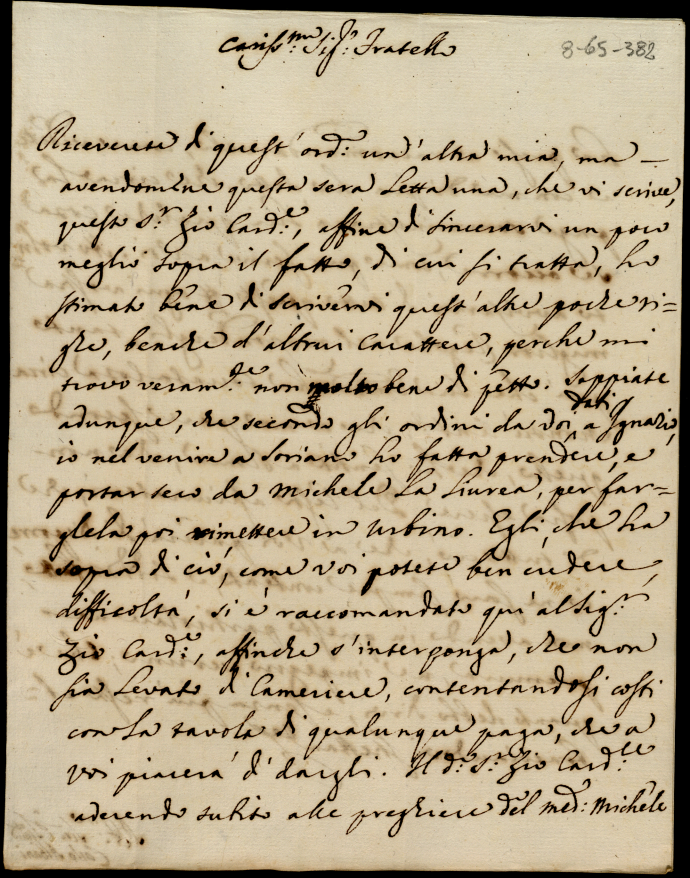 Cariss.mo Sig.r Fratello
8-65-382
Riceverete di quest' ord.o un' altra mia, ma
avendomene questa sera letta una, che vi scrive,
questo S.r Zio Card.e, affine di sincerarvi un poco
meglio sopra il fatto, di cui si tratta, ho
stimato bene di scrivervi quest' altre poche ri=
ghe, benche d' altrui carattere, perche mi
trovo veram.te non molto bene di petto. Sappiate
adunque, che secondo gli ordini da voi dati a Ignazio,
io nel venire a Soriano ho fatta prendere, e
portar seco da Michele la Liurea, per far=
glela poi rimettere in Urbino. Egli, che ha
sopra di ciò, come voi potete ben credere,
difficoltà, si è raccomandato qui al Sig.r
Zio Card.e, affinche s' interponga, che non
sia levato di Cameriere, contentandosi così
con la tavola di qualunque paga, che a
voi piacerà di dargli. Il d.o S.r Zio Card.le
aderendo subito alle preghiere del med.o Michele